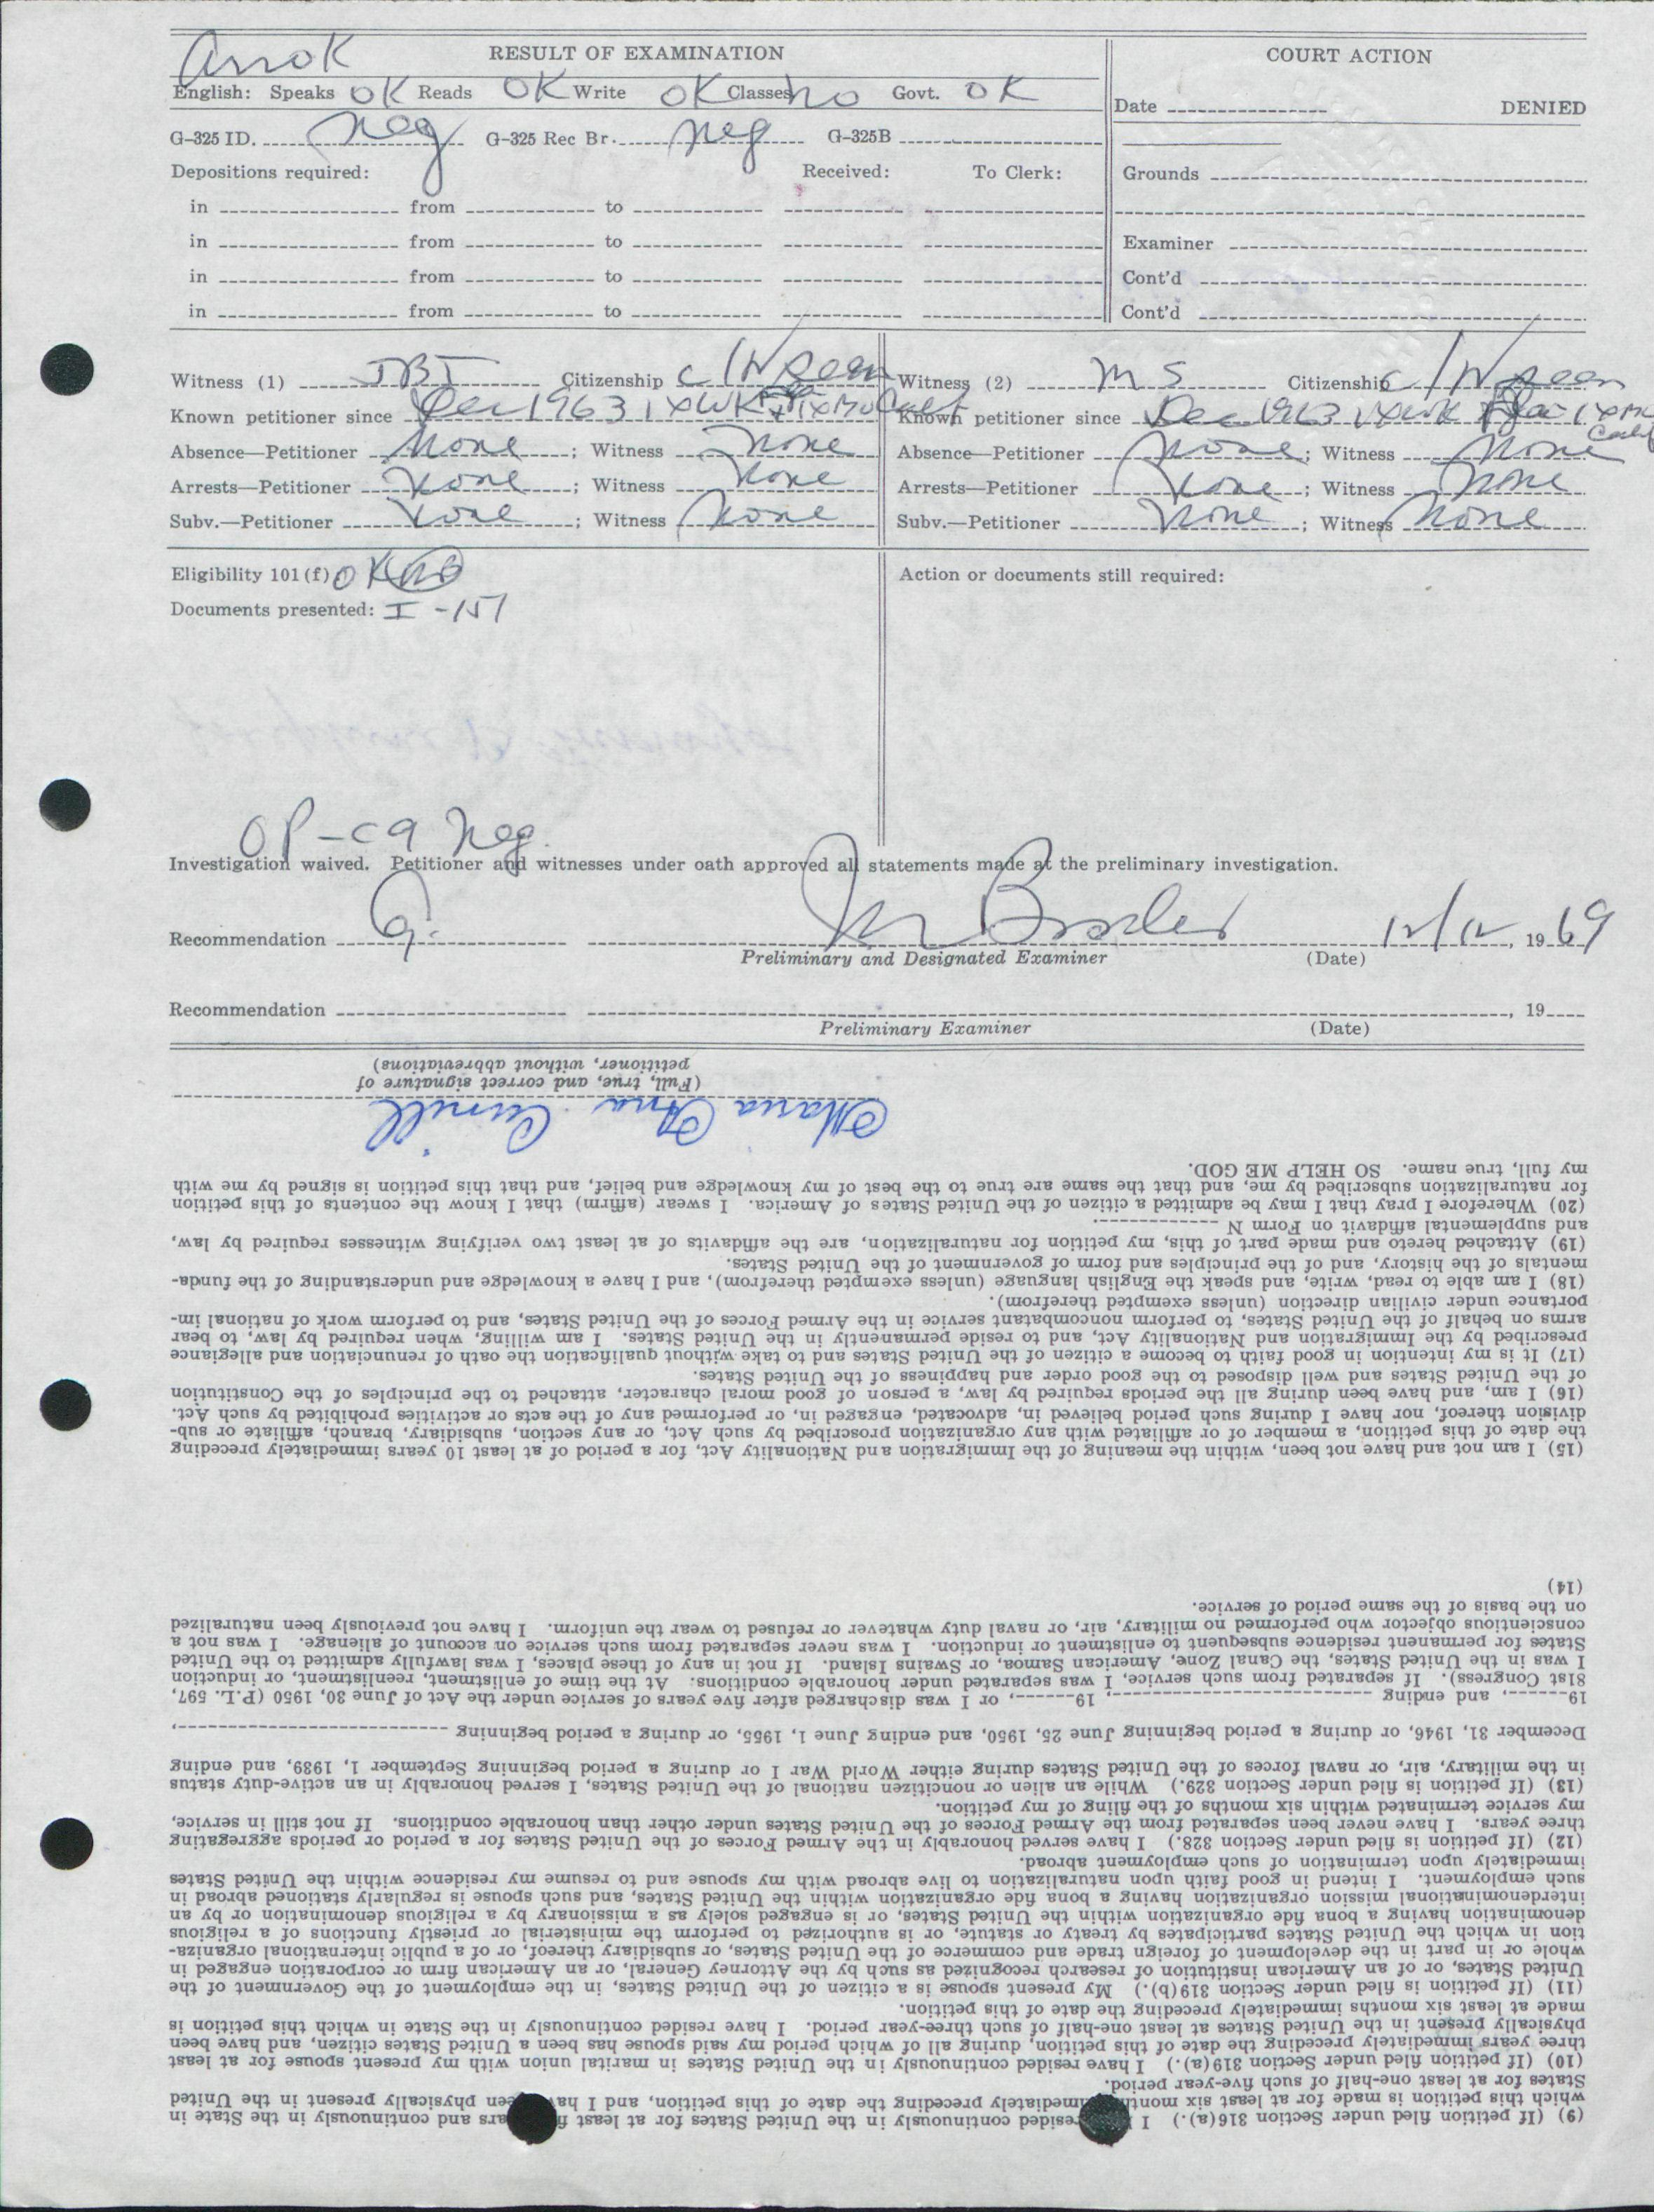 Arr OK
RESULT OF EXAMINATION
English: Speaks OK Reads OK Write OK Classes no Govt. OK
G-325 ID. neg G-325 Rec Br. neg G-325B
Depositions required: Received: To Clerk:
in from to
in from to
in from to
in from to
COURT ACTION
Date DENIED
Grounds
Examiner
Cont'd
Cont'd
Witness (1) JBT Citizenship C/N seen
Known petitioner since Dec 1963 1XWK
Absence—Petitioner None; Witness None
Arrests—Petitioner None; Witness None
Subv.—Petitioner None; Witness None
Witness (2) MS Citizenship C/N seen
Known petitioner since Dec 1963 1XWK Fla 1XMo Calif
Absence—Petitioner None; Witness None
Arrests—Petitioner None; Witness None
Subv.—Petitioner None; Witness None
Eligibility 101(f) OK
Documents presented: I-151
Action or documents still required:
OP-C9 Neg.
Investigation waived. Petitioner and witnesses under oath approved all statements made at the preliminary investigation.
Recommendation G. 12/12, 1969
Preliminary and Designated Examiner (Date)
Recommendation , 19
Preliminary Examiner (Date)
(9) (If petition filed under Section 316(a).) I resided continuously in the United States for at least and continuously in the State in
which this petition is made for at least six months immediately preceding the date of this petition, and I have been physically present in the United
States for at least one-half of such five-year period.
(10) (If petition filed under Section 319(a).) I have resided continuously in the United States in marital union with my present spouse for at least
three years immediately preceding the date of this petition, during all of which period my said spouse has been a United States citizen, and have been
physically present in the United States at least one-half of such three-year period. I have resided continuously in the State in which this petition is
made at least six months immediately preceding the date of this petition.
(11) (If petition is filed under Section 319(b).) My present spouse is a citizen of the United States, in the employment of the Government of the
United States, or of an American institution of research recognized as such by the Attorney General, or an American firm or corporation engaged in
whole or in part in the development of foreign trade and commerce of the United States, or subsidiary thereof, or of a public international organiza-
tion in which the United States participates by treaty or statute, or is authorized to perform the ministerial or priestly functions of a religious
denomination having a bona fide organization within the United States, or is engaged solely as a missionary by a religious denomination or by an
interdenominational mission organization having a bona fide organization within the United States, and such spouse is regularly stationed abroad in
such employment. I intend in good faith upon naturalization to live abroad with my spouse and to resume my residence within the United States
immediately upon termination of such employment abroad.
(12) (If petition is filed under Section 328.) I have served honorably in the Armed Forces of the United States for a period or periods aggregating
three years. I have never been separated from the Armed Forces of the United States under other than honorable conditions. If not still in service,
my service terminated within six months of the filing of my petition.
(13) (If petition is filed under Section 329.) While an alien or noncitizen national of the United States, I served honorably in an active-duty status
in the military, air, or naval forces of the United States during either World War I or during a period beginning September 1, 1939, and ending
December 31, 1946, or during a period beginning June 25, 1950, and ending June 1, 1955, or during a period beginning ,
19 , and ending , 19 , or I was discharged after five years of service under the Act of June 30, 1950 (P.L. 597,
81st Congress). If separated from such service, I was separated under honorable conditions. At the time of enlistment, reenlistment, or induction
I was in the United States, the Canal Zone, American Samoa, or Swains Island. If not in any of these places, I was lawfully admitted to the United
States for permanent residence subsequent to enlistment or induction. I was never separated from such service on account of alienage. I was not a
conscientious objector who performed no military, air, or naval duty whatever or refused to wear the uniform. I have not previously been naturalized
on the basis of the same period of service.
(14)
(15) I am not and have not been, within the meaning of the Immigration and Nationality Act, for a period of at least 10 years immediately preceding
the date of this petition, a member of or affiliated with any organization proscribed by such Act, or any section, subsidiary, branch, affiliate or sub-
division thereof, nor have I during such period believed in, advocated, engaged in, or performed any of the acts or activities prohibited by such Act.
(16) I am, and have been during all the periods required by law, a person of good moral character, attached to the principles of the Constitution
of the United States and well disposed to the good order and happiness of the United States.
(17) It is my intention in good faith to become a citizen of the United States and to take without qualification the oath of renunciation and allegiance
prescribed by the Immigration and Nationality Act, and to reside permanently in the United States. I am willing, when required by law, to bear
arms on behalf of the United States, to perform noncombatant service in the Armed Forces of the United States, and to perform work of national im-
portance under civilian direction (unless exempted therefrom).
(18) I am able to read, write, and speak the English language (unless exempted therefrom), and I have a knowledge and understanding of the funda-
mentals of the history, and of the principles and form of government of the United States.
(19) Attached hereto and made part of this, my petition for naturalization, are the affidavits of at least two verifying witnesses required by law,
and supplemental affidavit on Form N .
(20) Wherefore I pray that I may be admitted a citizen of the United States of America. I swear (affirm) that I know the contents of this petition
for naturalization subscribed by me, and that the same are true to the best of my knowledge and belief, and that this petition is signed by me with
my full, true name. SO HELP ME GOD.
Maria Ana Cunill
(Full, true, and correct signature of
petitioner, without abbreviations)